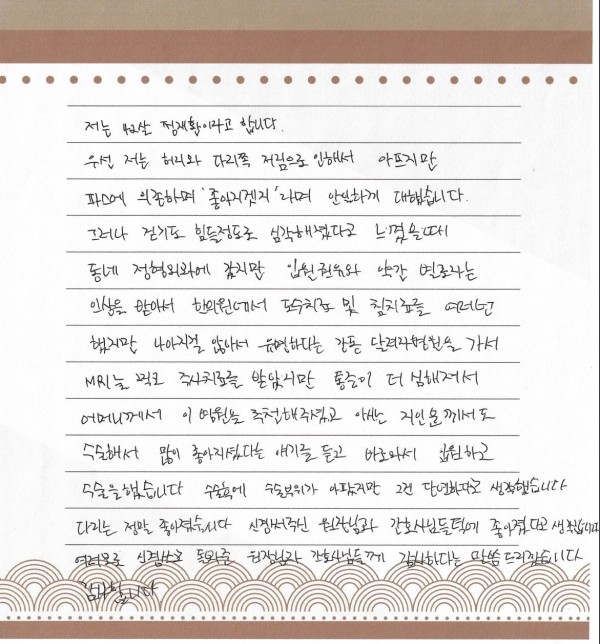 저는 42살 정재환이라고 합니다.
우선 저는 허리와 다리쪽 저림으로 인해서 아프지만
파스에 의존하며 '좋아지겠지'라며 안일하게 대했습니다.
그러나 걷기도 힘들정도로 심각해졌다고 느꼈을때
동네 정형외과에 갔지만 입원권유와 약간 별로라는
인상을 받아서 한의원에서 도수치료 및 침치료를 여러번
했지만 나아지질 않아서 유명하다는 강남 병원을 가서
MRI를 찍고 주사치료를 받았지만 통증이 더 심해져서
어머니께서 이 병원을 추천해주셨고 아는 지인분께서도
수술해서 많이 좋아지셨다는 얘기를 듣고 바로와서 입원하고
수술을했습니다 수술후에 수술부위가 아팠지만 그건 당연하다고 생각했습니다
다리는 정말 좋아졌습니다 신경써주신 원장님과 간호사님들덕에 좋아졌다고 생각합니다
여러모로 신경쓰고 도와준 원장님과 간호사님들께 감사하다는 말씀 드리겠습니다
감사합니다